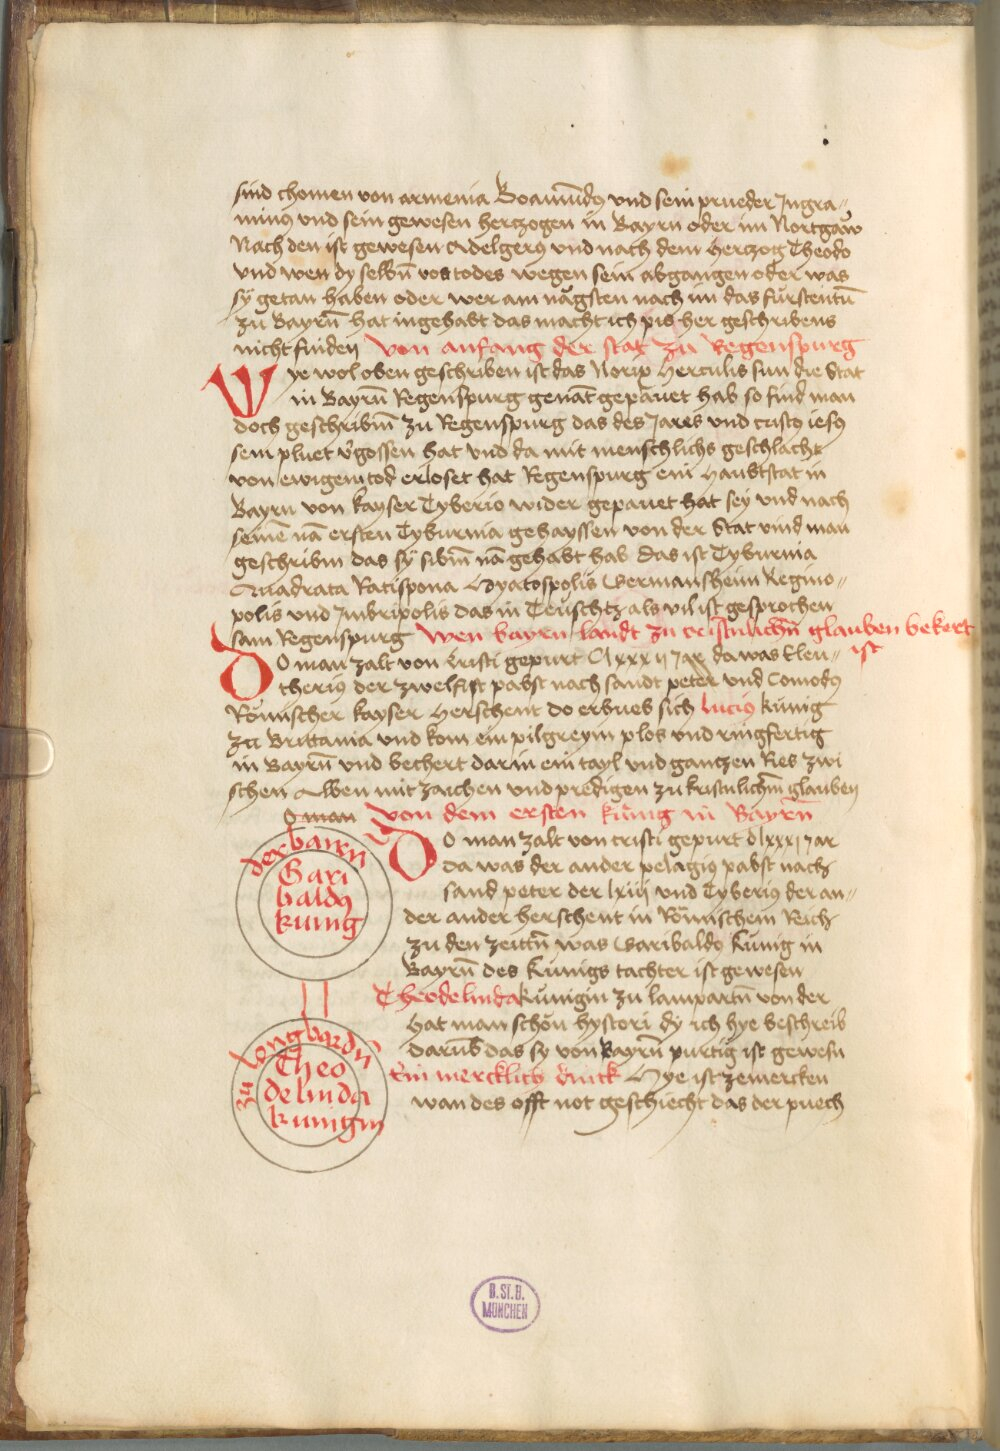 sind chomen von armenia Boamundus vnd sein prueder Ingra-
minus vnd sein gewesen herczogen in Bayrn oder im Nortgaw
Nach den ist gewesen Adelgerus vnd nach dem herczog Theodo
vnd wen dy selbn̄ von todes wegen sein abgangen oder was
sÿ getan haben oder wer am nägsten nach im das fürstentū
zu Bayrn̄ hat ingehabt das macht ich pis her geschribens
nicht finden Von anfang der stat zu Regenspurg
Wye wol oben geschriben ist das Norix Herculis sun die Stat
in Bayrn̄ Regenspurg genāt gepauet hab so find man
doch geschribm̄ zu Regenspurg das des Jares vnd cristus iesus
sein pluet v̓gossen hat vnd da mit menschlichs geschlächt
von ewigem tod erloset hat Regenspurg ein Haubtstat in
Bayrn von kayser Tyberio wider gepauet hat sey vnd nach
seinē nā ersten Tyburnia gehayssen von der Stat vind man
geschribm das sÿ sibm̄ nā gehabt hab das ist Tyburnia
Quadrata Ratispona Hyatospolis Germansheim Regino-
polis vnd Imbripolis das in Teuschtz als vil ist gesprochen
sam Regenspurg Wen bayrn landt zu cristnlichn̄ glauben bekert
ist
DO man zalt von Cristi gepurt Clxxxij Jar da was Eleu-
therius der zwelfift pabst nach sandt peter vnd Comodus
Römischer kayser Herschent do erhueb sich lucius künig
zu Brittania vnd kom ein pilgreym plos vnd ringfertig
in Bayrn̄ vnd bechert darin ein tayl vnd gantzen Ries zwi
schen Alben mit zaichen vnd predigen zu kristnlichm̄ glauben
O man Von dem ersten künig in Bayrn̄
DO man zalt von cristi gepurt dlxxxj Jar
da was der ander pelagius pabst nach
sand peter der lxiij vnd Tyberius der an-
der ander herschent in Römischem Reich
zu den zeittn̄ was Garibaldus künig in
Bayrn̄ des künigs tachter ist gewesen
Theodelinda künigin zu lampartn̄ von der
hat man schön hystori dy ich hye beschreib
darūb das sy von Bayrn̄ purtig ist gewesn
Ein mercklich stuck Hye ist zemercken
wan des offt not geschiecht das der puech
der bairn
Gari
baldus
kunig
zu longbardn̄
Theo
delinda
kunigin
B.St.B.
MÜNCHEN